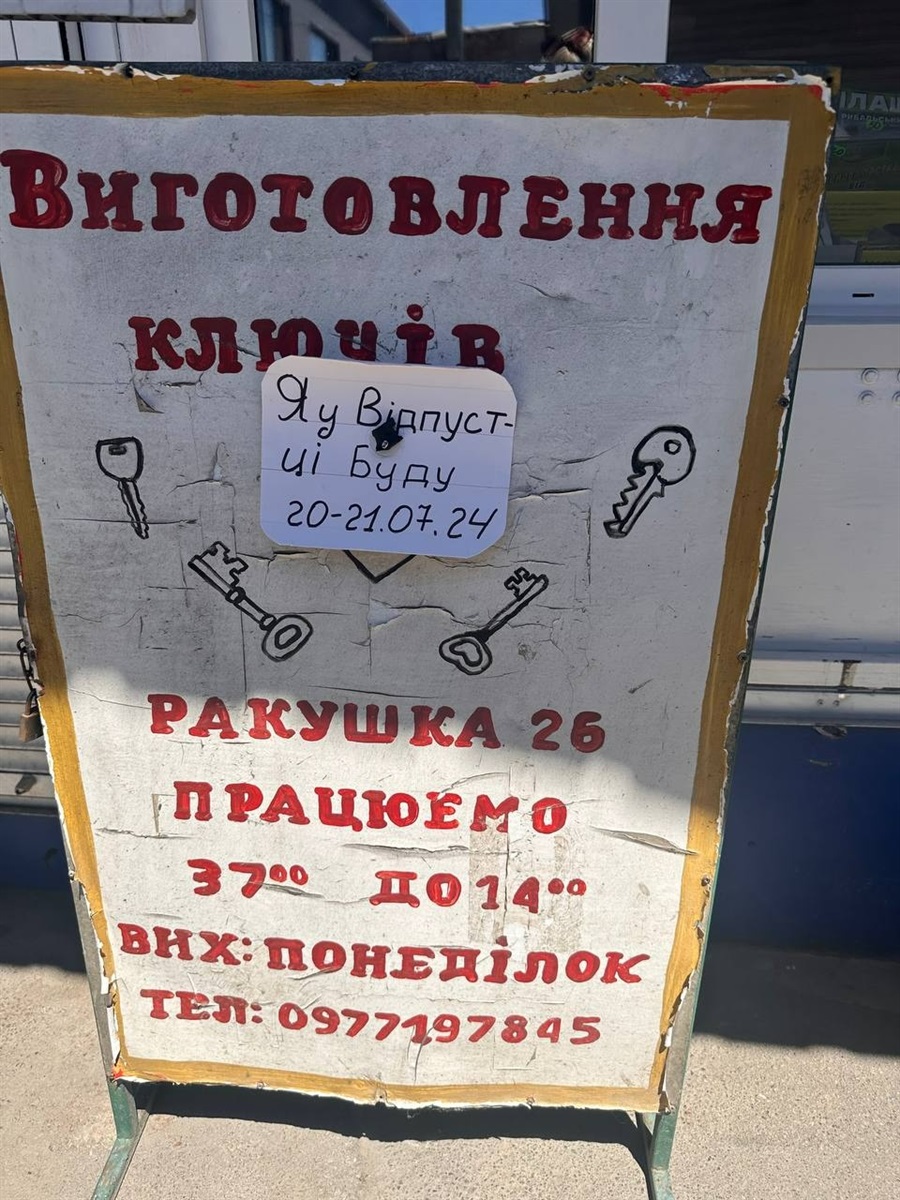 ВИГОТОВЛЕННЯ
КЛЮЧІВ
Я у Відпуст-
ці Буду
20-21.07.24
РАКУШКА 26
ПРАЦЮЄМО
З 7⁰⁰ ДО 14⁰⁰
ВИХ: ПОНЕДІЛОК
ТЕЛ: 0977197845